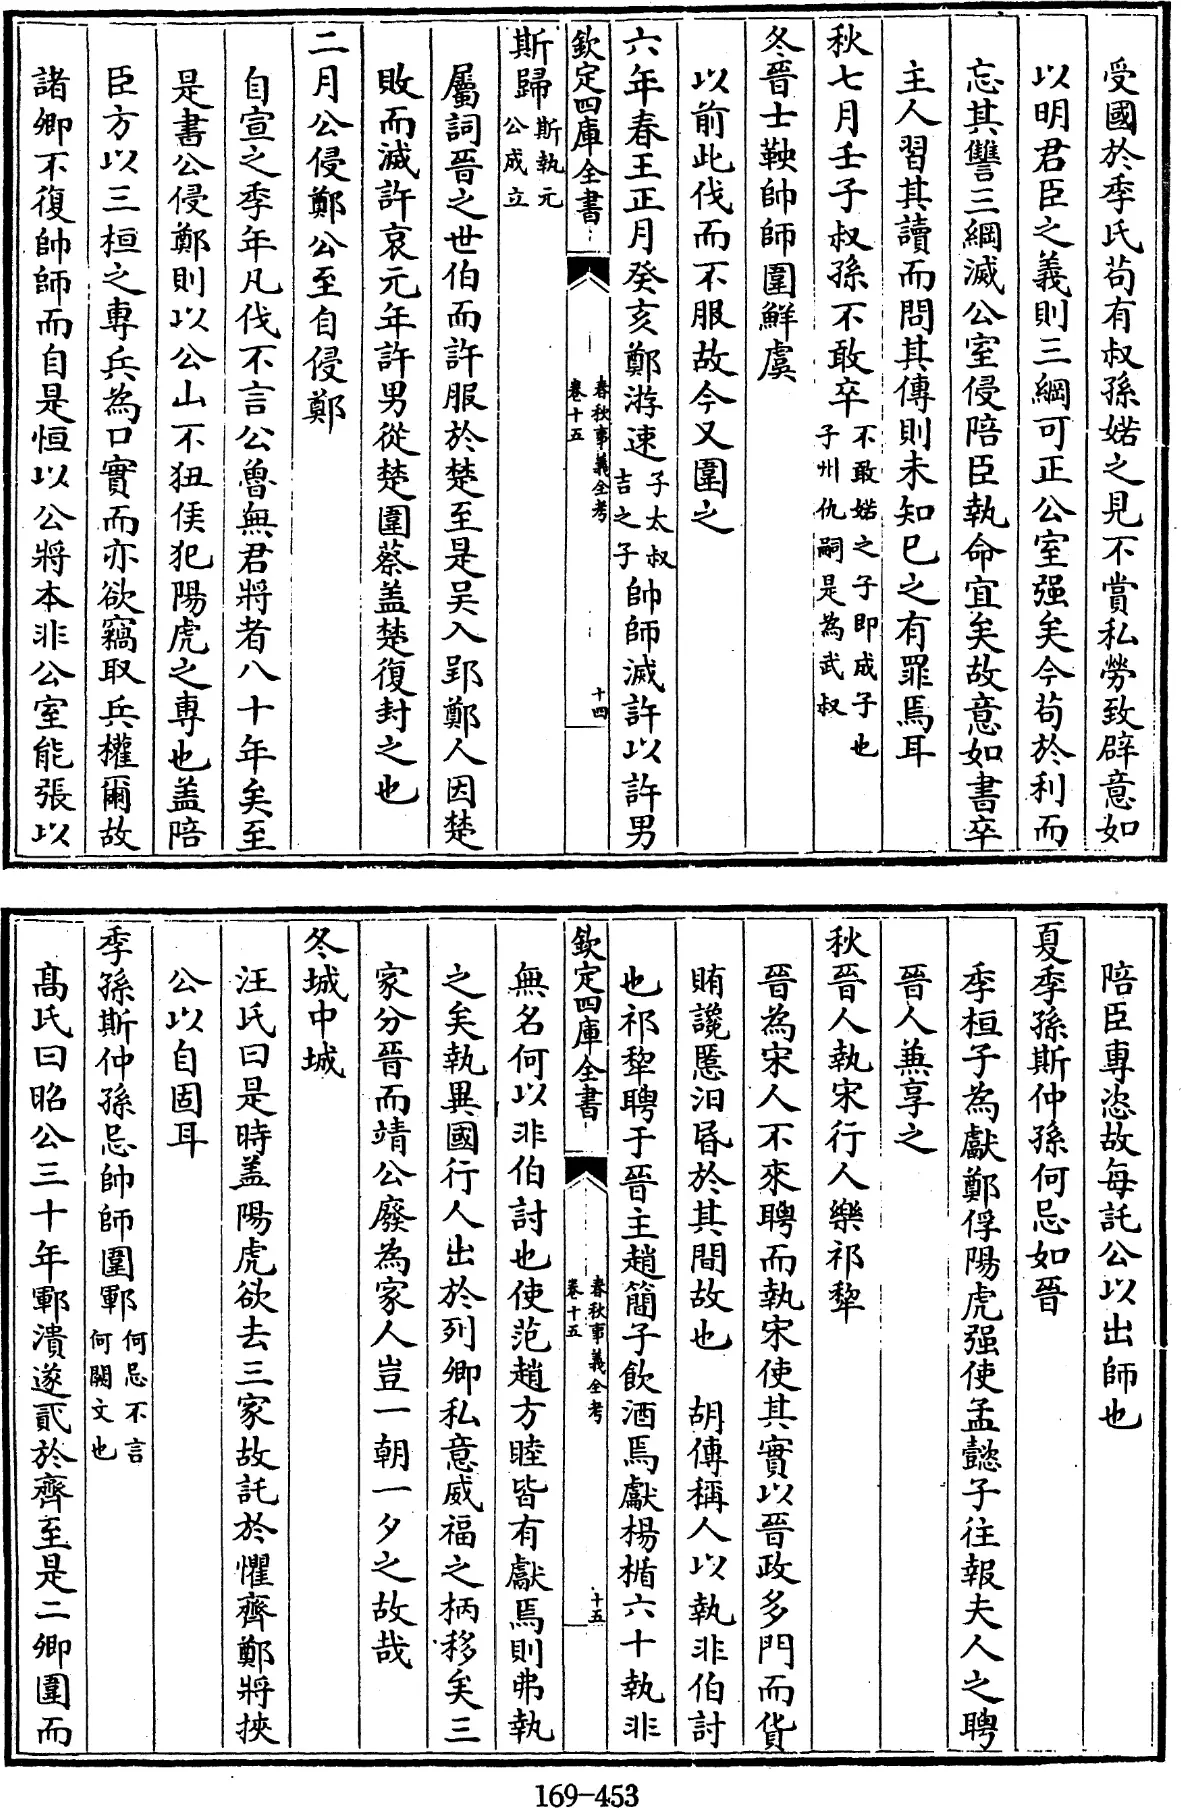 受國於季氏苟有叔孫婼之見不賞私勞致辟意如
以明君臣之義則三綱可正公室强矣今苟於利而
忘其讐三綱滅公室侵陪臣執命宜矣故意如書卒
主人習其讀而問其傳則未知已之有罪焉耳
秋七月壬子叔孫不敢卒不敢婼之子即成子也子州仇嗣是為武叔
冬晉士鞅帥師圍鮮虞
以前此伐而不服故今又圍之
六年春王正月癸亥鄭游速子太叔吉之子帥師滅許以許男
欽定四庫全書
春秋事義全考
卷十五
十四
斯歸斯執元公成立
屬詞晉之世伯而許服於楚至是吴入郢鄭人因楚
敗而滅許哀元年許男從楚圍蔡盖楚復封之也
二月公侵鄭公至自侵鄭
自宣之季年凡伐不言公魯無君將者八十年矣至
是書公侵鄭則以公山不狃侯犯陽虎之專也盖陪
臣方以三桓之專兵為口實而亦欲竊取兵權爾故
諸卿不復帥師而自是恒以公將本非公室能張以
陪臣專恣故每託公以出師也
夏季孫斯仲孫何忌如晉
季桓子為獻鄭俘陽虎强使孟懿子往報夫人之聘
晉人兼享之
秋晉人執宋行人樂祁犂
晉為宋人不來聘而執宋使其實以晉政多門而貨
賄讒慝汩昬於其間故也 胡傳稱人以執非伯討
也祁犂聘于晉主趙簡子飲酒焉獻楊楯六十執非
欽定四庫全書
春秋事義全考
卷十五
十五
無名何以非伯討也使范趙方睦皆有獻焉則弗執
之矣執異國行人出於列卿私意威福之柄移矣三
家分晉而靖公廢為家人豈一朝一夕之故哉
冬城中城
汪氏曰是時盖陽虎欲去三家故託於懼齊鄭將挾
公以自固耳
季孫斯仲孫忌帥師圍鄆何忌不言何闕文也
髙氏曰昭公三十年鄆潰遂貳於齊至是二卿圍而
169-453